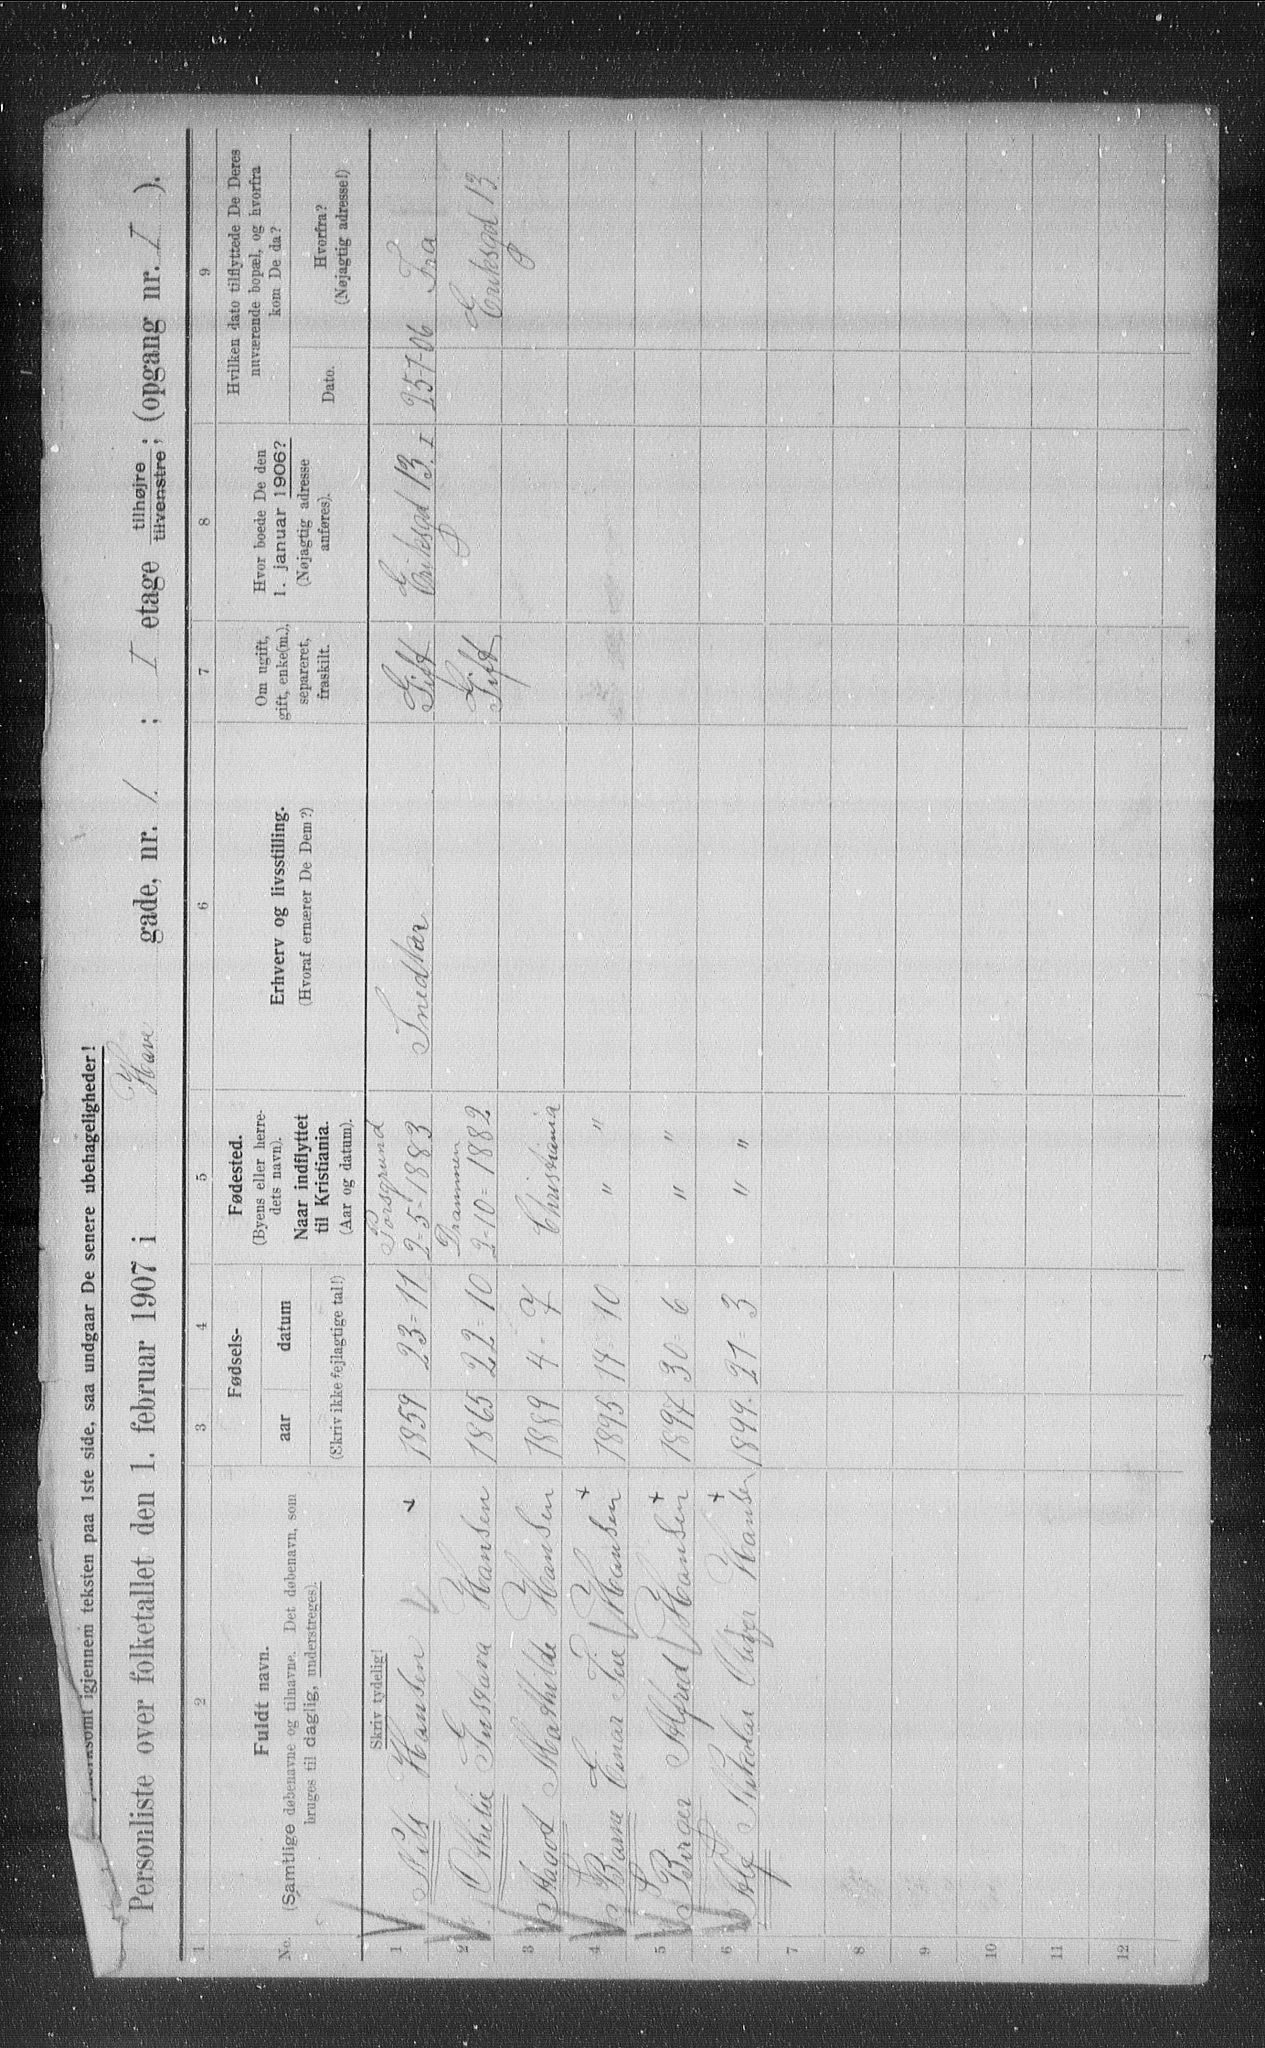 mærksomt igjennem teksten paa 1ste side, saa undgaar De senere ubehageligheder!
Personliste over folketallet den 1. februar 1907 i Have gade, nr. 1. ; I etage tilhøjre tilvenstre ; (opgang nr. I ).
1 2 3 4 5 6 7 8 9
No.
Fuldt navn.
(Samtlige døbenavne og tilnavne. Det døbenavn, som
bruges til daglig, understreges).
Fødsels-
aar datum
(Skriv ikke fejlagtige tal!)
Fødested.
(Byens eller herre-
dets navn).
Naar indflyttet
til Kristiania.
(Aar og datum).
Erhverv og livsstilling.
(Hvoraf ernærer De Dem?)
Om ugift,
gift, enke(m.),
separeret,
fraskilt.
Hvor boede De den
1. januar 1906?
(Nøjagtig adresse
anføres).
Hvilken dato tilflyttede De Deres
nuværende bopæl, og hvorfra
kom De da?
Dato.
Hvorfra?
(Nøjagtig adresse!)
Skriv tydelig!
1 Nils Hansen + 1859 23=11 Porsgrund 2=5=1883 Snedkar Gift Eriksgd 13. I 25-7-06 Fra
2 Othilie Gustava Hansen 1865 22=10 Drammen 2=10=1882 Gift Eriksgd 13
3 Aagot Mathilde Hansen 1889 4-7 Christiania
4 Bjarne Einar Hansen + 1895 14-10 " "
5 Birger Alfred Hansen + 1897 30=6 " "
6 Alf Nikolai Hansen + 1899. 21=3 " "
7
8
9
10
11
12